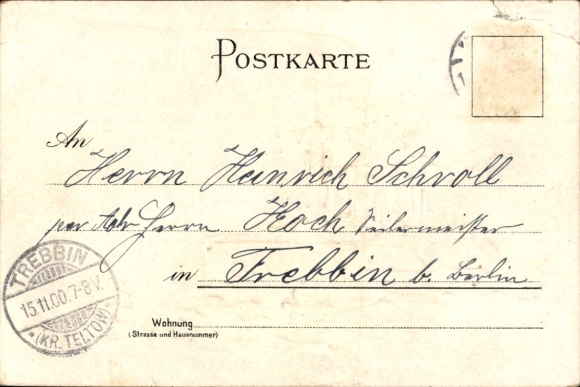 POSTKARTE
An
Herrn Heinrich Schroll
per Adr. Herrn Koch Seilermeister
in Trebbin b. Berlin
Wohnung
(Strasse und Hausnummer)
TREBBIN
15.11.00.7-8V.
* (KR. TELTOW)